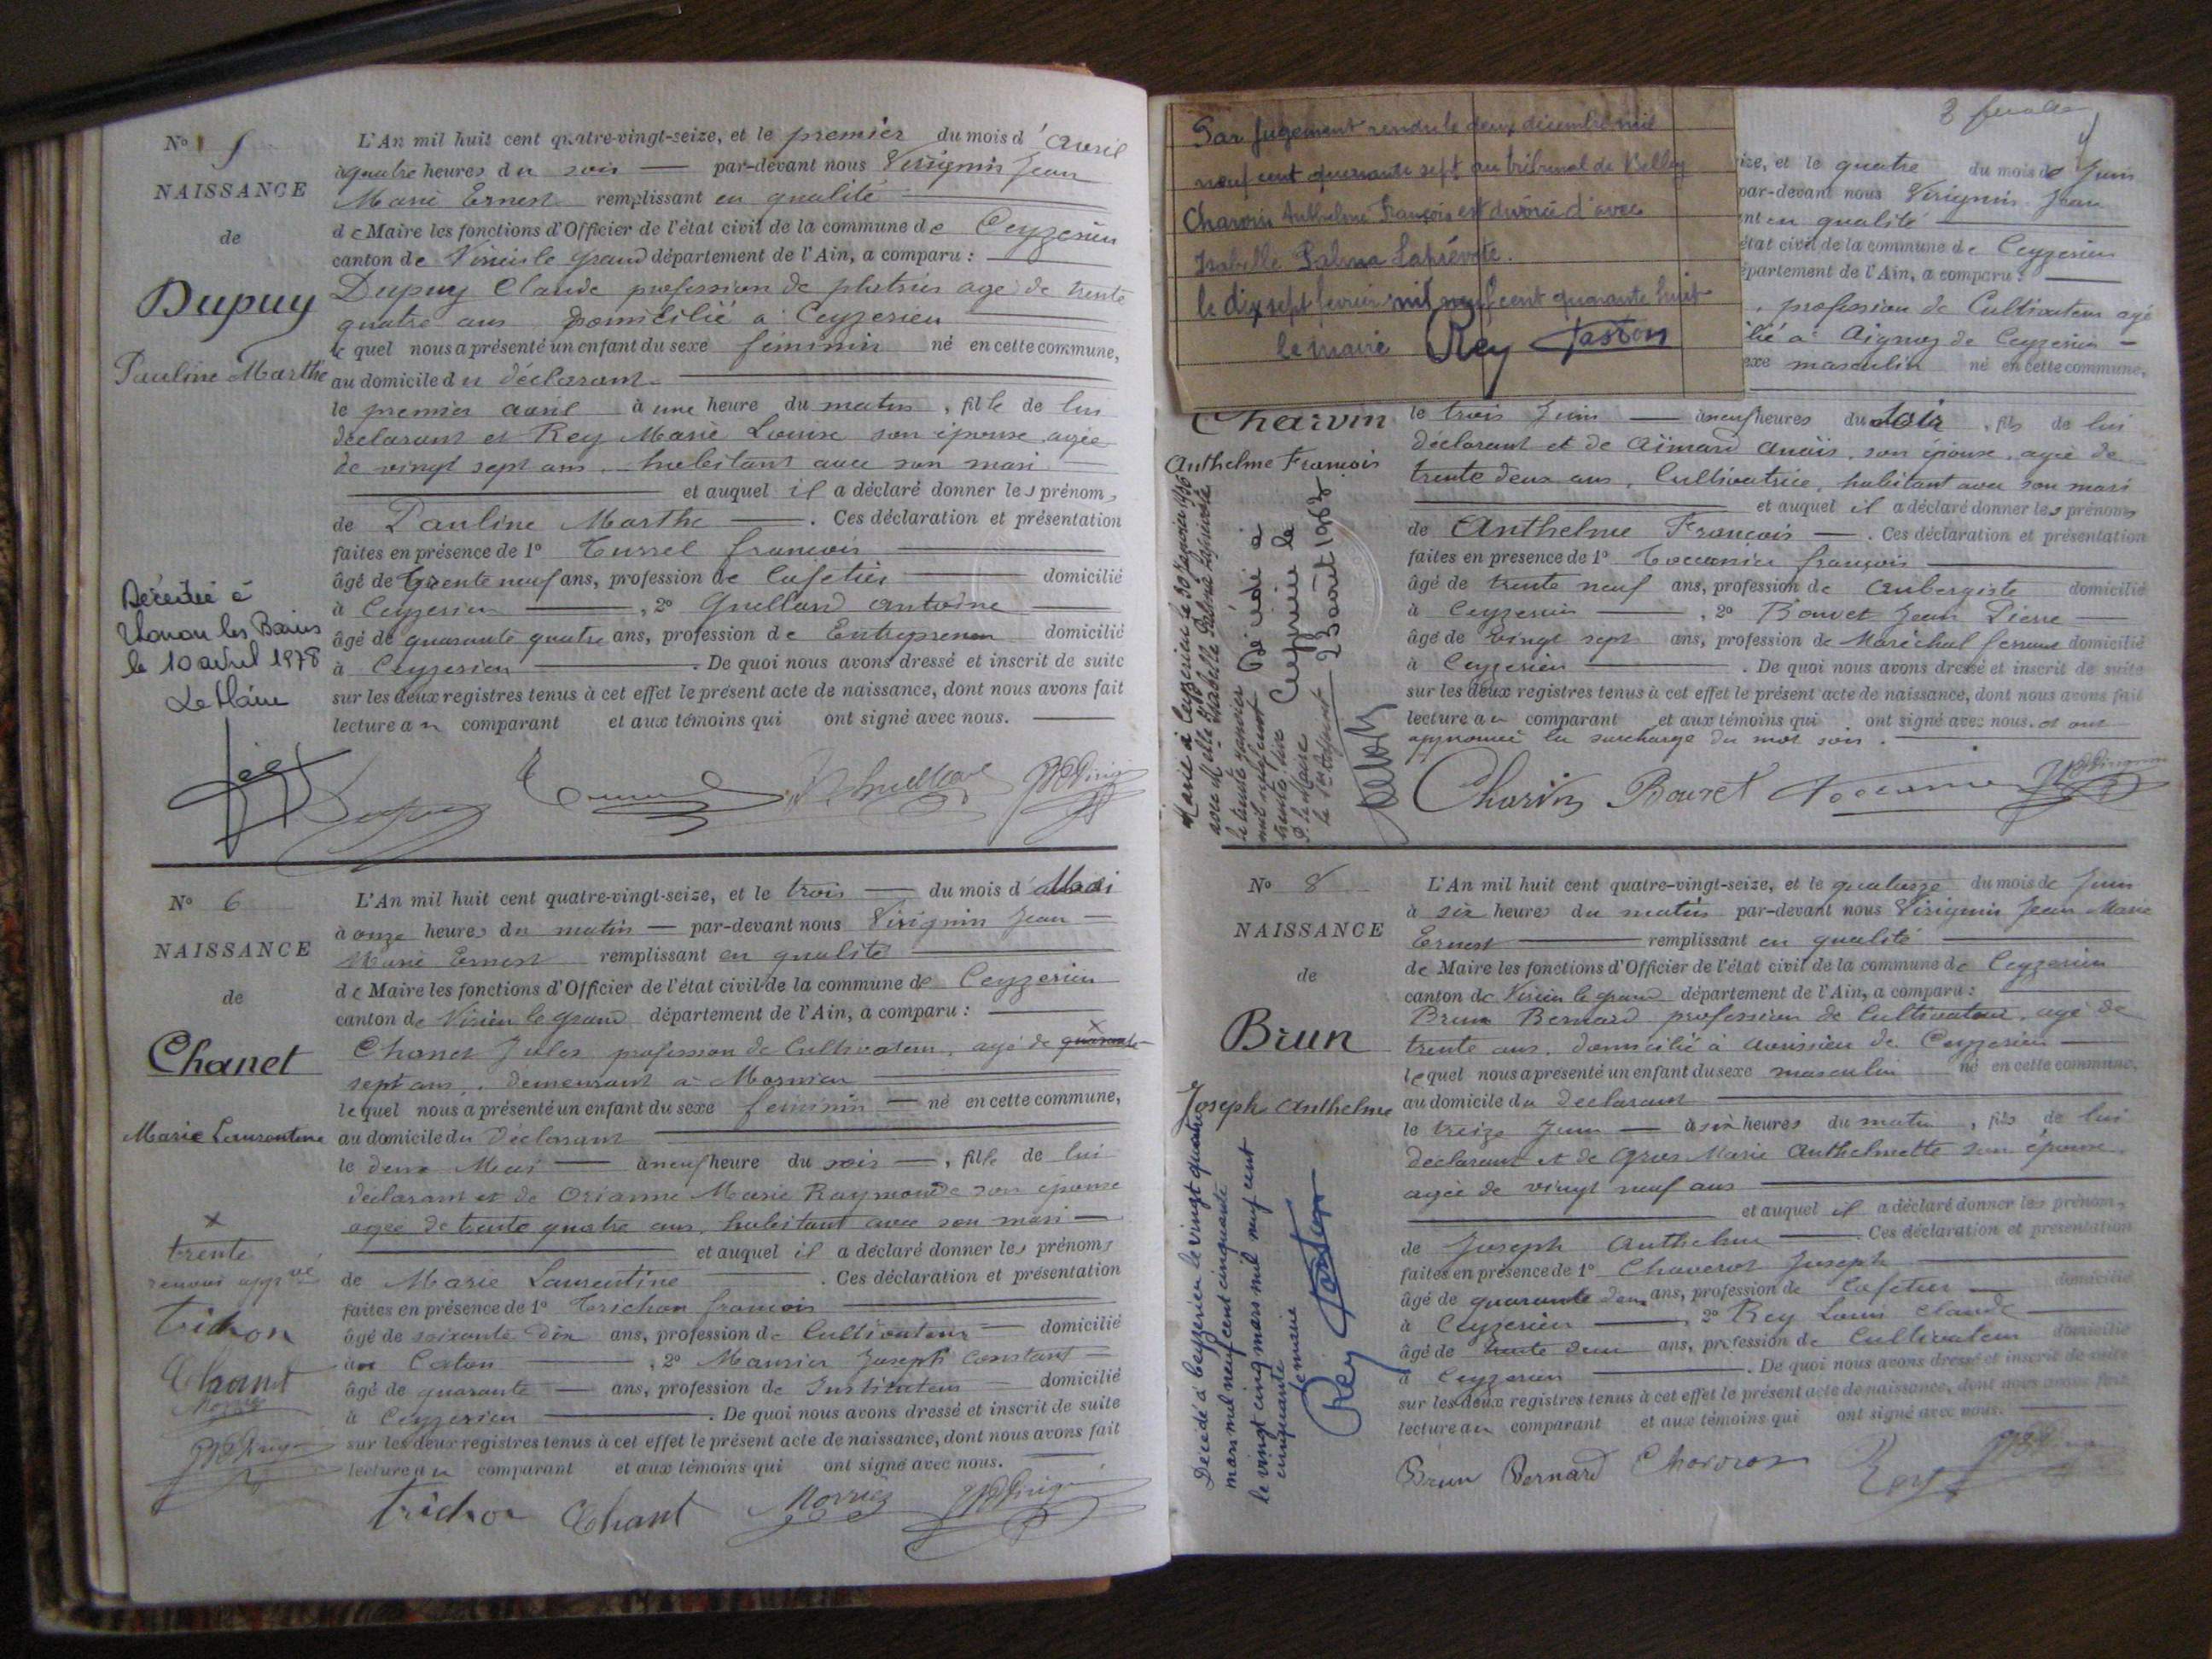 No 5
NAISSANCE
de
Dupuy
Pauline Marthe
L'An mil huit cent quatre-vingt-seize, et le premier du mois d'avril
à quatre heures du soir — par-devant nous Virignin Jean
Marie Ernest remplissant en qualité
de Maire les fonctions d'Officier de l'état civil de la commune de Ceyzerieu
canton de Virieu le grand département de l'Ain, a comparu :
Dupuy Claude profession de platrier agé de trente
quatre ans domicilié à Ceyzerieu
lequel nous a présenté un enfant du sexe féminin né en cette commune,
au domicile du déclarant
le premier avril à une heure du matin, fille de lui
déclarant et Rey Marie Louise son épouse agée
de vingt sept ans, habitant avec son mari
et auquel il a déclaré donner les prénoms
de Pauline Marthe — . Ces déclaration et présentation
faites en présence de 1o François
âgé de trente neuf ans, profession de Cafetier domicilié
à Ceyzerieu — , 2o antoine
âgé de quarante quatre ans, profession de Entrepreneur domicilié
à Ceyzerieu — . De quoi nous avons dressé et inscrit de suite
sur les deux registres tenus à cet effet le présent acte de naissance, dont nous avons fait
lecture au comparant et aux témoins qui ont signé avec nous.
Décédée à
Thonon les Bains
le 10 avril 1978
Le Maire
No 6
NAISSANCE
de
Chanet
Marie Laurentine
L'An mil huit cent quatre-vingt-seize, et le trois — du mois d Mai
à onze heures du matin — par-devant nous Virignin Jean —
Marie Ernest remplissant en qualité
de Maire les fonctions d'Officier de l'état civil de la commune de Ceyzerieu
canton de Virieu le grand département de l'Ain, a comparu :
Chanet Jules profession de Cultivateur, agé de quarante
sept ans, demeurant à
lequel nous a présenté un enfant du sexe féminin — né en cette commune,
au domicile du déclarant
le deux Mai — à neuf heure du soir —, fille de lui
déclarant et de Marie Raymonde son épouse
agée de trente quatre ans, habitant avec son mari —
et auquel il a déclaré donner les prénoms
de Marie Laurentine — . Ces déclaration et présentation
faites en présence de 1o Trichon françois
âgé de soixante dix ans, profession de Cultivateur — domicilié
à — , 2o Joseph Constant —
âgé de quarante — ans, profession de Instituteur — domicilié
à Ceyzerieu — . De quoi nous avons dressé et inscrit de suite
sur les deux registres tenus à cet effet le présent acte de naissance, dont nous avons fait
lecture au comparant et aux témoins qui ont signé avec nous.
x
trente
renvoi appvé
trichon
Chant
trichon Chant
Par jugement rendu le deux décembre mil
neuf cent quarante sept au tribunal de Belley
Charvin Anthelme François est divorcé d'avec
Isabelle Palma Laprévote.
le dix sept février mil neuf cent quarante huit
le maire Rey Gaston
ize, et le quatre du mois de Juin
par-devant nous Virignin Jean
nt en qualité
état civil de la commune de Ceyzerieu
épartement de l'Ain, a comparu :
, profession de Cultivateur agé
lié à Aignoz de Ceyzerieu —
exe masculin né en cette commune,
Charvin
Anthelme François
le trois Juin — à neuf heures du soir, fils de lui
déclarant et de Aimard Anaïs, son épouse, agée de
trente deux ans, Cultivatrice, habitant avec son mari
et auquel il a déclaré donner les prénoms
de Anthelme François — . Ces déclaration et présentation
faites en présence de 1o françois
âgé de trente neuf ans, profession de Aubergiste domicilié
à Ceyzerieu — , 2o Bouvet Jean Pierre —
âgé de vingt sept ans, profession de Maréchal ferrant domicilié
à Ceyzerieu — . De quoi nous avons dressé et inscrit de suite
sur les deux registres tenus à cet effet le présent acte de naissance, dont nous avons fait
lecture au comparant et aux témoins qui ont signé avec nous. et ont
approuvé la surcharge du mot soir.
Charvin Bouvet
Marié à Ceyzerieu le 30 Janvier 1936
avec Isabelle Palma Laprévote
le trente janvier
mil neuf cent
trente six
Décédé à
Ceyzerieu le
23 août 1982
No 8
NAISSANCE
de
Brun
Joseph Anthelme
L'An mil huit cent quatre-vingt-seize, et le quatorze du mois de Juin
à six heures du matin par-devant nous Virignin Jean Marie
Ernest — remplissant en qualité
de Maire les fonctions d'Officier de l'état civil de la commune de Ceyzerieu
canton de Virieu le grand département de l'Ain, a comparu :
Brun Bernard profession de Cultivateur, agé de
trente ans, domicilié à Avrissieu de Ceyzerieu —
lequel nous a présenté un enfant du sexe masculin né en cette commune,
au domicile du déclarant
le treize Juin — à six heures du matin, fils de lui
déclarant et de Gros Marie Anthelmette son épouse
agée de vingt neuf ans
et auquel il a déclaré donner les prénoms
de Joseph Anthelme — . Ces déclaration et présentation
faites en présence de 1o Chaverot Joseph
âgé de quarante deux ans, profession de Cafetier — domicilié
à Ceyzerieu — , 2o Rey Louis Claude
âgé de trente deux ans, profession de Cultivateur domicilié
à Ceyzerieu — . De quoi nous avons dressé et inscrit de suite
sur les deux registres tenus à cet effet le présent acte de naissance, dont nous avons fait
lecture au comparant et aux témoins qui ont signé avec nous.
Brun Bernard Rey
Décédé à Ceyzerieu le vingt quatre
mars mil neuf cent cinquante
le vingt cinq mars mil neuf cent
cinquante
le maire
Rey Gaston